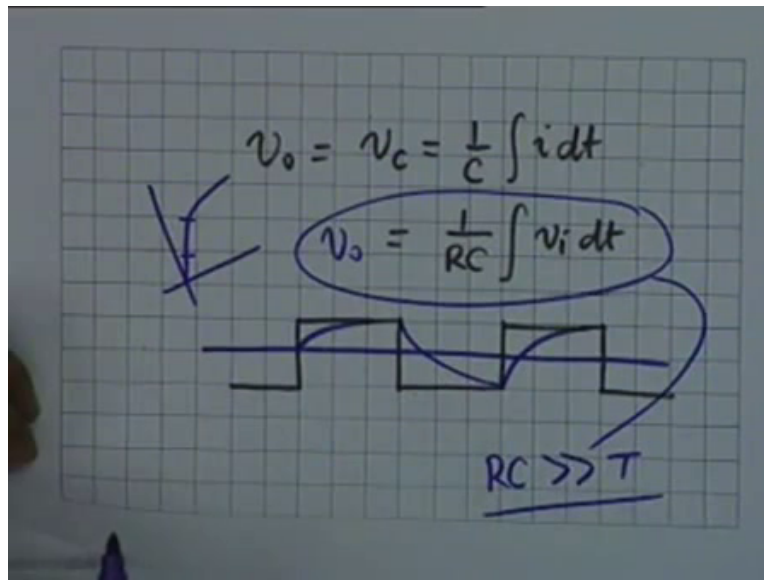 v₀ = v_C = 1/C ∫ i dt
v₀ = 1/RC ∫ vᵢ dt
RC >> T